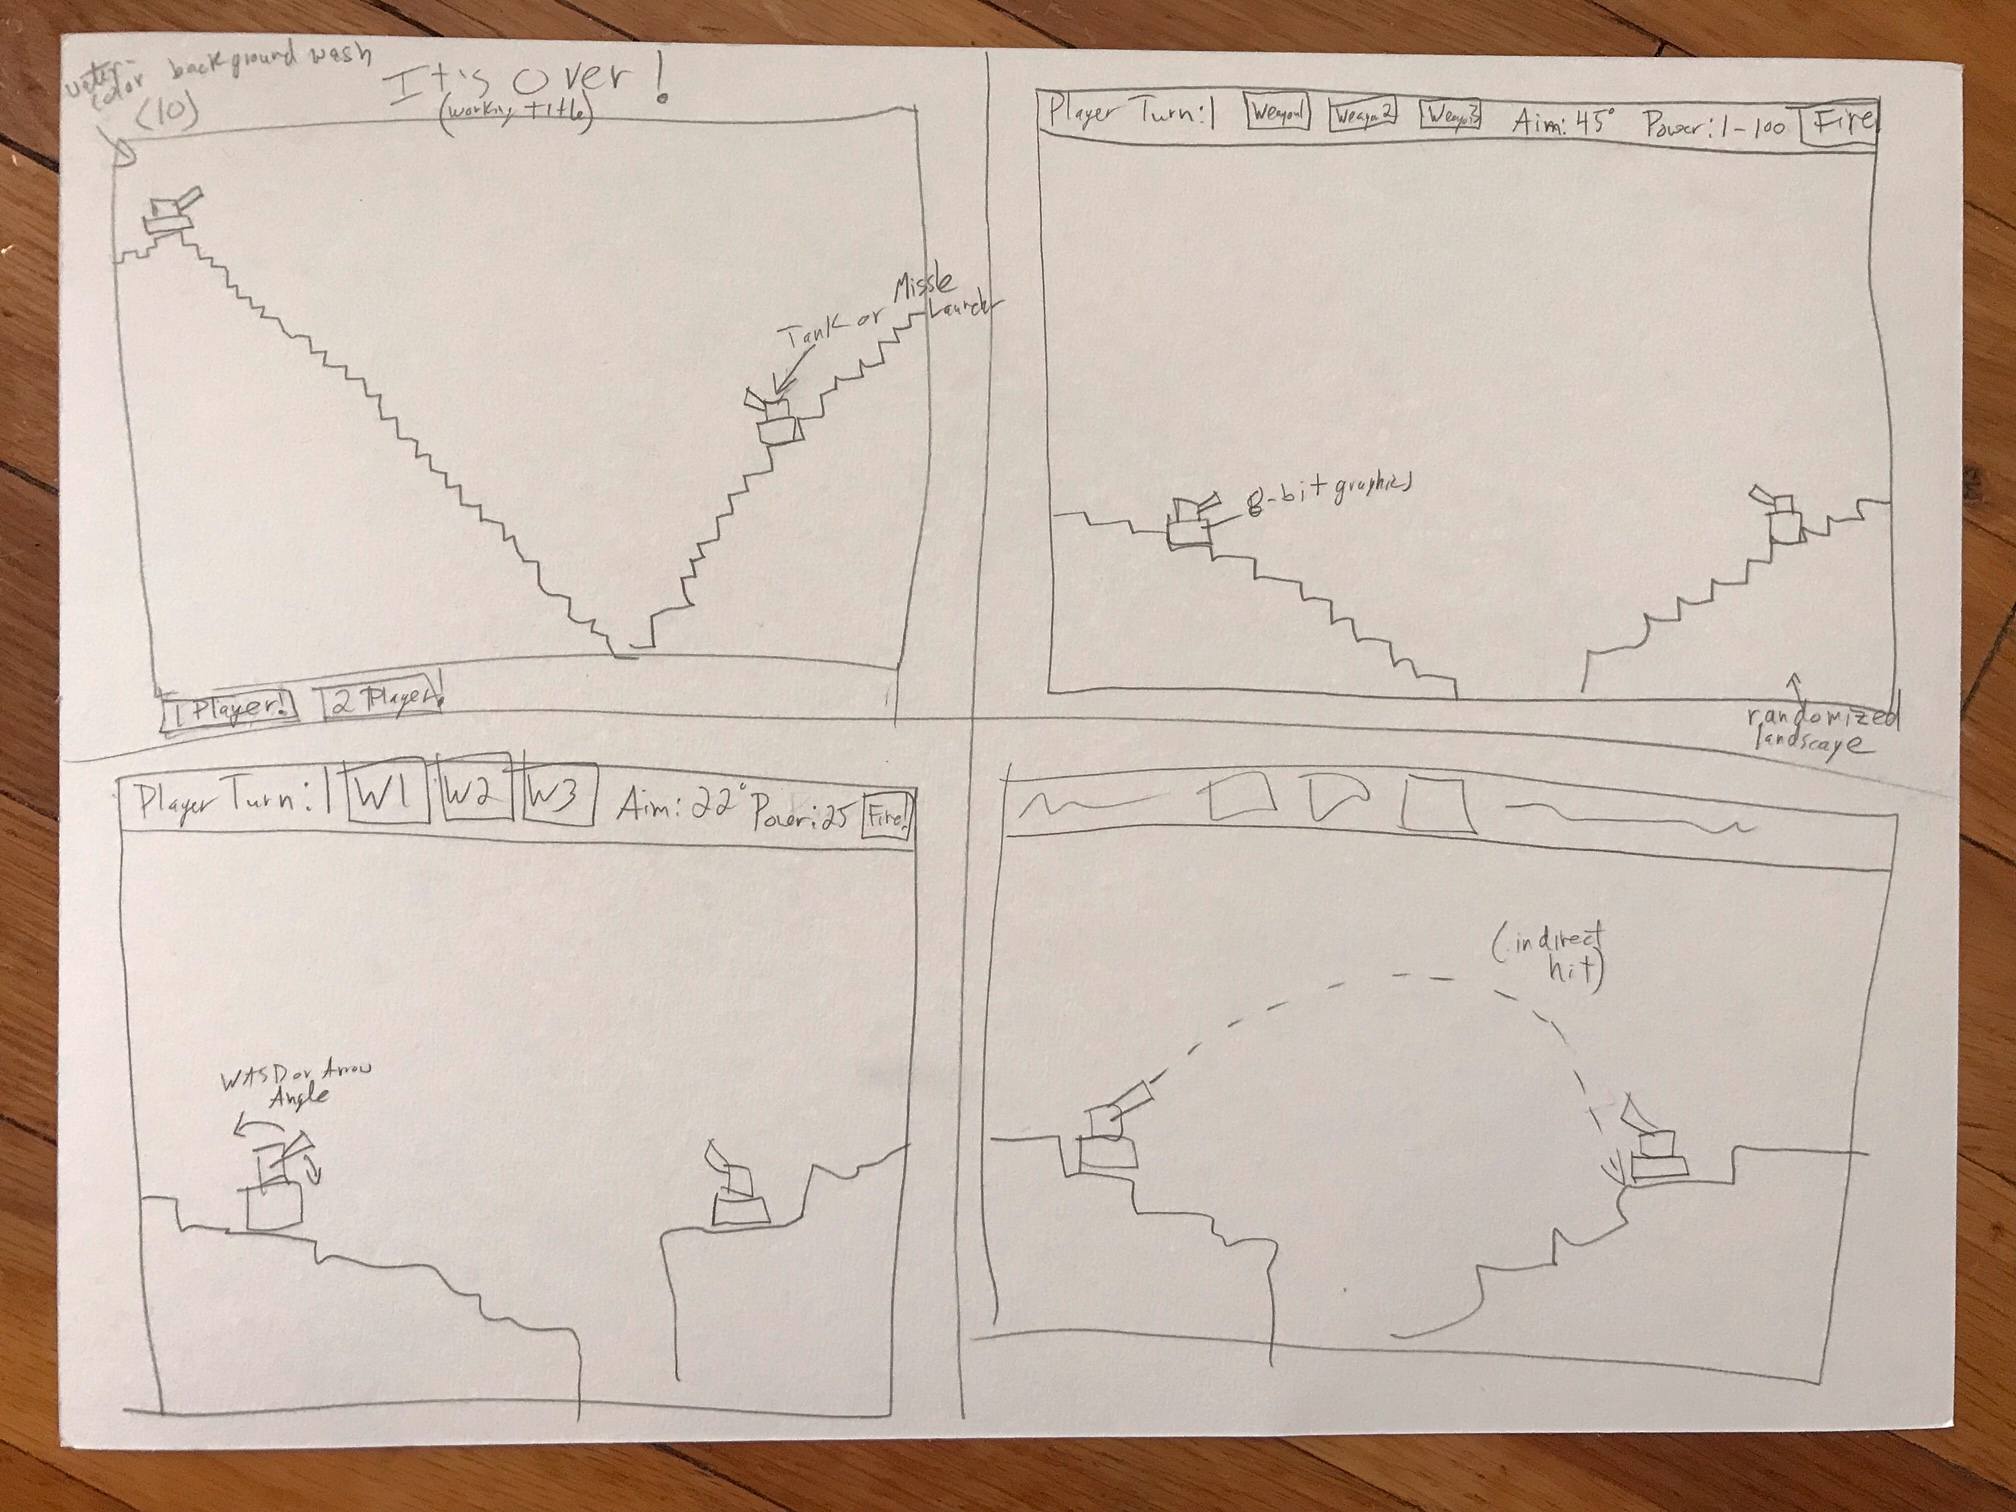 water-
color background wash
(10)
It's Over!
(working Title)
Tank or Missle
Launcher
1 Player!
2 Player!
Player Turn: 1 Weapon1 Weapon2 Weapon3 Aim: 45° Power: 1-100 Fire
8-bit graphics
randomized
landscape
Player Turn: 1 W1 W2 W3 Aim: 22° Power: 25 Fire!
WASD or Arrow
Angle
(indirect
hit)